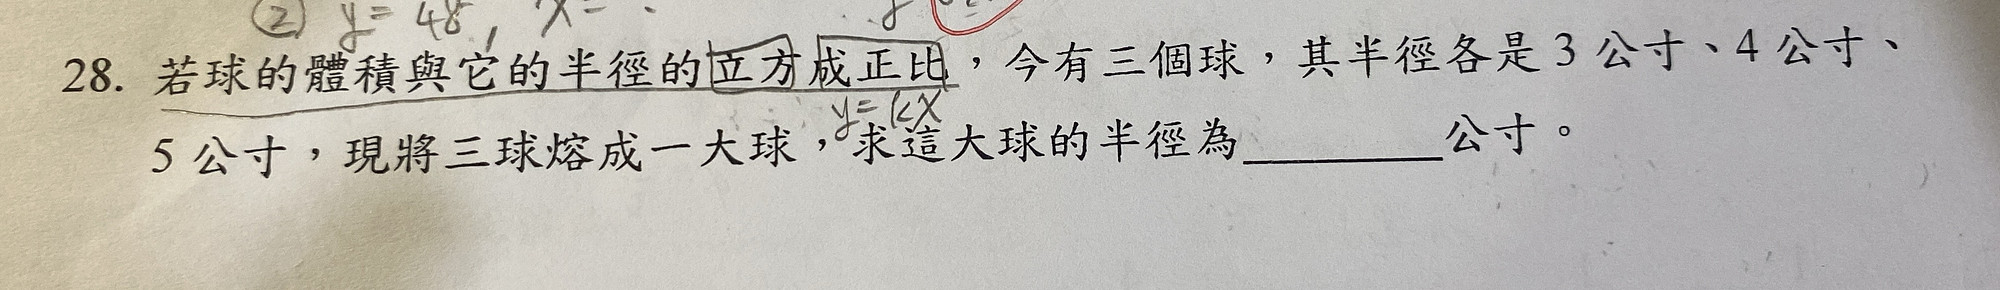 ② y = 48, x =
28. 若球的體積與它的半徑的立方成正比，今有三個球，其半徑各是 3 公寸、4 公寸、
y = kx
5 公寸，現將三球熔成一大球，求這大球的半徑為________公寸。